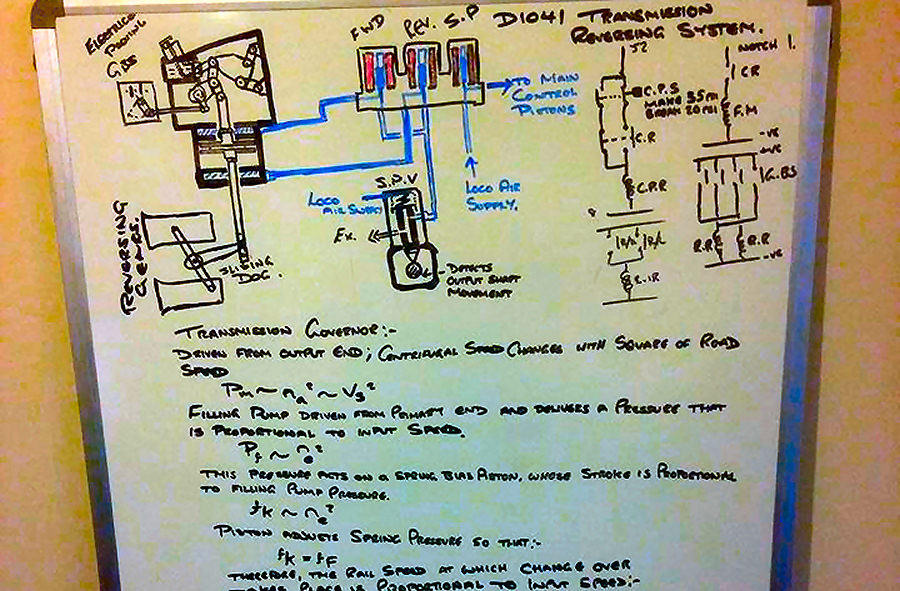 D1041 TRANSMISSION
REVERSING SYSTEM.
FWD
REV.
S.P
TO MAIN
CONTROL
PISTONS
J2
NOTCH 1.
C.P.S
MAKE 35 PSI
BREAK 20 PSI
CR
F.M
C.R.
-VE
+VE
G.BS
C.P.R
R.R
R.R
-VE
LOCO AIR
SUPPLY.
S.P.V
LOCO
AIR SUPPLY
EX.
DETECTS
OUTPUT SHAFT
MOVEMENT
REVERSING
GEARS.
SLIDING
DOG.
TRANSMISSION GOVERNOR:-
DRIVEN FROM OUTPUT END; CENTRIFUGAL SPEED CHANGES WITH SQUARE OF ROAD
SPEED
Pm ~ na² ~ Vs²
FILLING PUMP DRIVEN FROM PRIMARY END AND DELIVERS A PRESSURE THAT
IS PROPORTIONAL TO INPUT SPEED.
THIS PRESSURE ACTS ON A SPRING BIAS PISTON, WHOSE STROKE IS PROPORTIONAL
TO FILLING PUMP PRESSURE.
PISTON ADJUSTS SPRING PRESSURE SO THAT:-
fK = fF
THEREFORE, THE RAIL SPEED AT WHICH CHANGE OVER
TAKES PLACE IS PROPORTIONAL TO INPUT SPEED:-